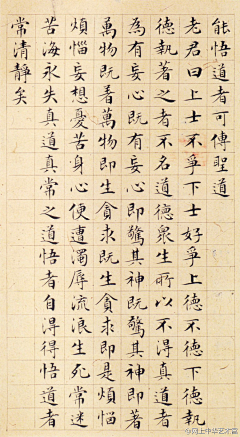 能悟道者可傳聖道
老君曰上士不爭下士好爭上德不德下德執
德執著之者不名道德衆生所以不得真道者
為有妄心既有妄心即驚其神既驚其神即著
萬物既著萬物即生貪求既生貪求即是煩惱
煩惱妄想憂苦身心便遭濁辱流浪生死常迷
苦海永失真道真常之道悟者自得得悟道者
常清靜矣
@网上中华艺术宫